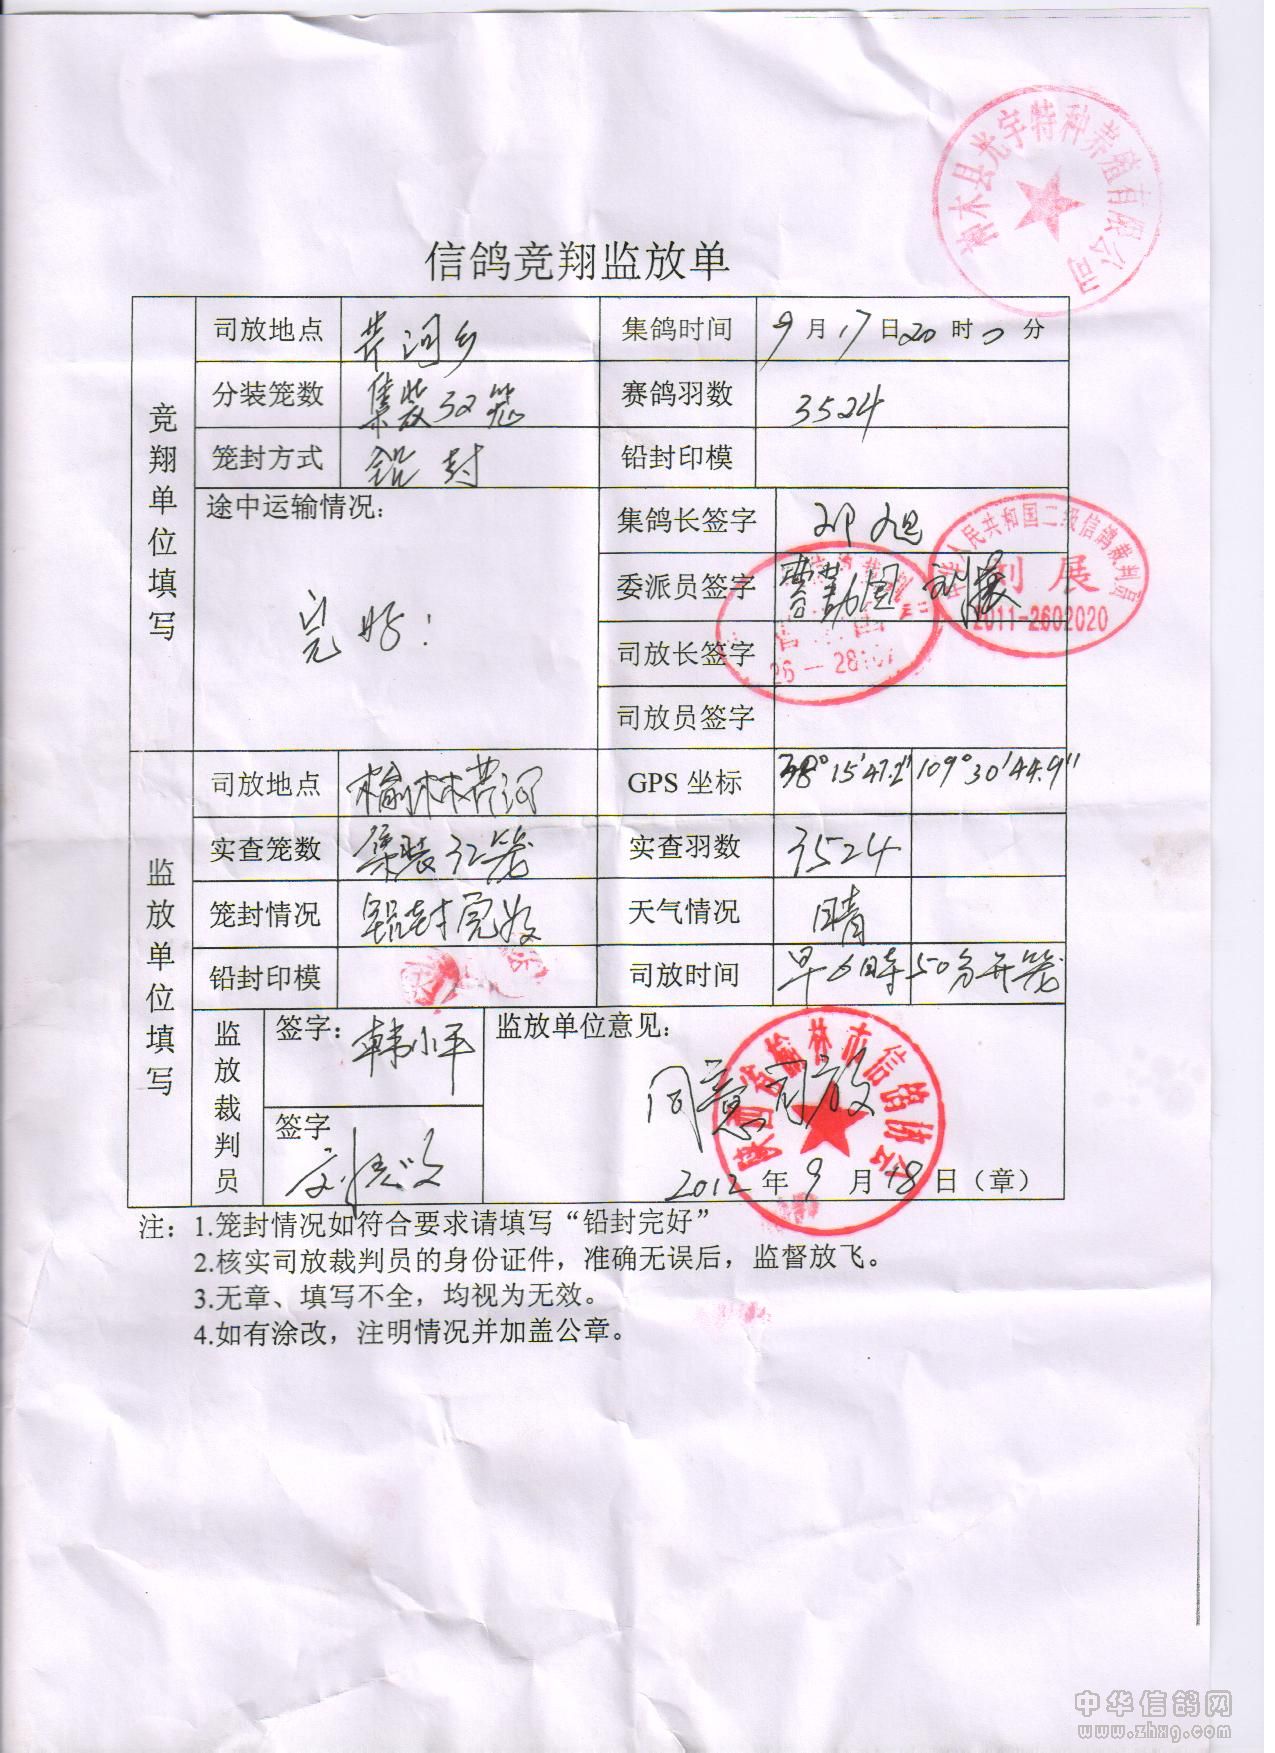 神木县光宇特种养殖有限公司
信鸽竞翔监放单
竞翔单位填写
司放地点 芹河乡 集鸽时间 9月17日20时0分
分装笼数 集装32笼 赛鸽羽数 3524
笼封方式 铅封 铅封印模
途中运输情况: 完好! 集鸽长签字 邓旭
委派员签字 刘展
中华人民共和国二级信鸽裁判员
刘展
2011-2602020
司放长签字
司放员签字
监放单位填写
司放地点 榆林芹河 GPS 坐标 38°15'47.2" 109°30'44.9"
实查笼数 集装32笼 实查羽数 3524
笼封情况 铅封完好 天气情况 晴
铅封印模 司放时间 早6时50分开笼
监放裁判员 签字: 韩小平 监放单位意见:
同意司放
陕西省榆林市信鸽协会
签字
2012年9月18日(章)
注: 1.笼封情况如符合要求请填写“铅封完好”
2.核实司放裁判员的身份证件，准确无误后，监督放飞。
3.无章、填写不全，均视为无效。
4.如有涂改，注明情况并加盖公章。
中华信鸽网
www.zhxg.com